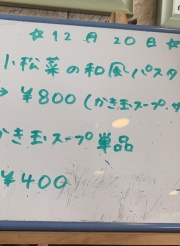 ☆12月20日☆
小松菜の和風パスタ
→ ¥800(かき玉スープ、サ
かき玉スープ単品
¥400